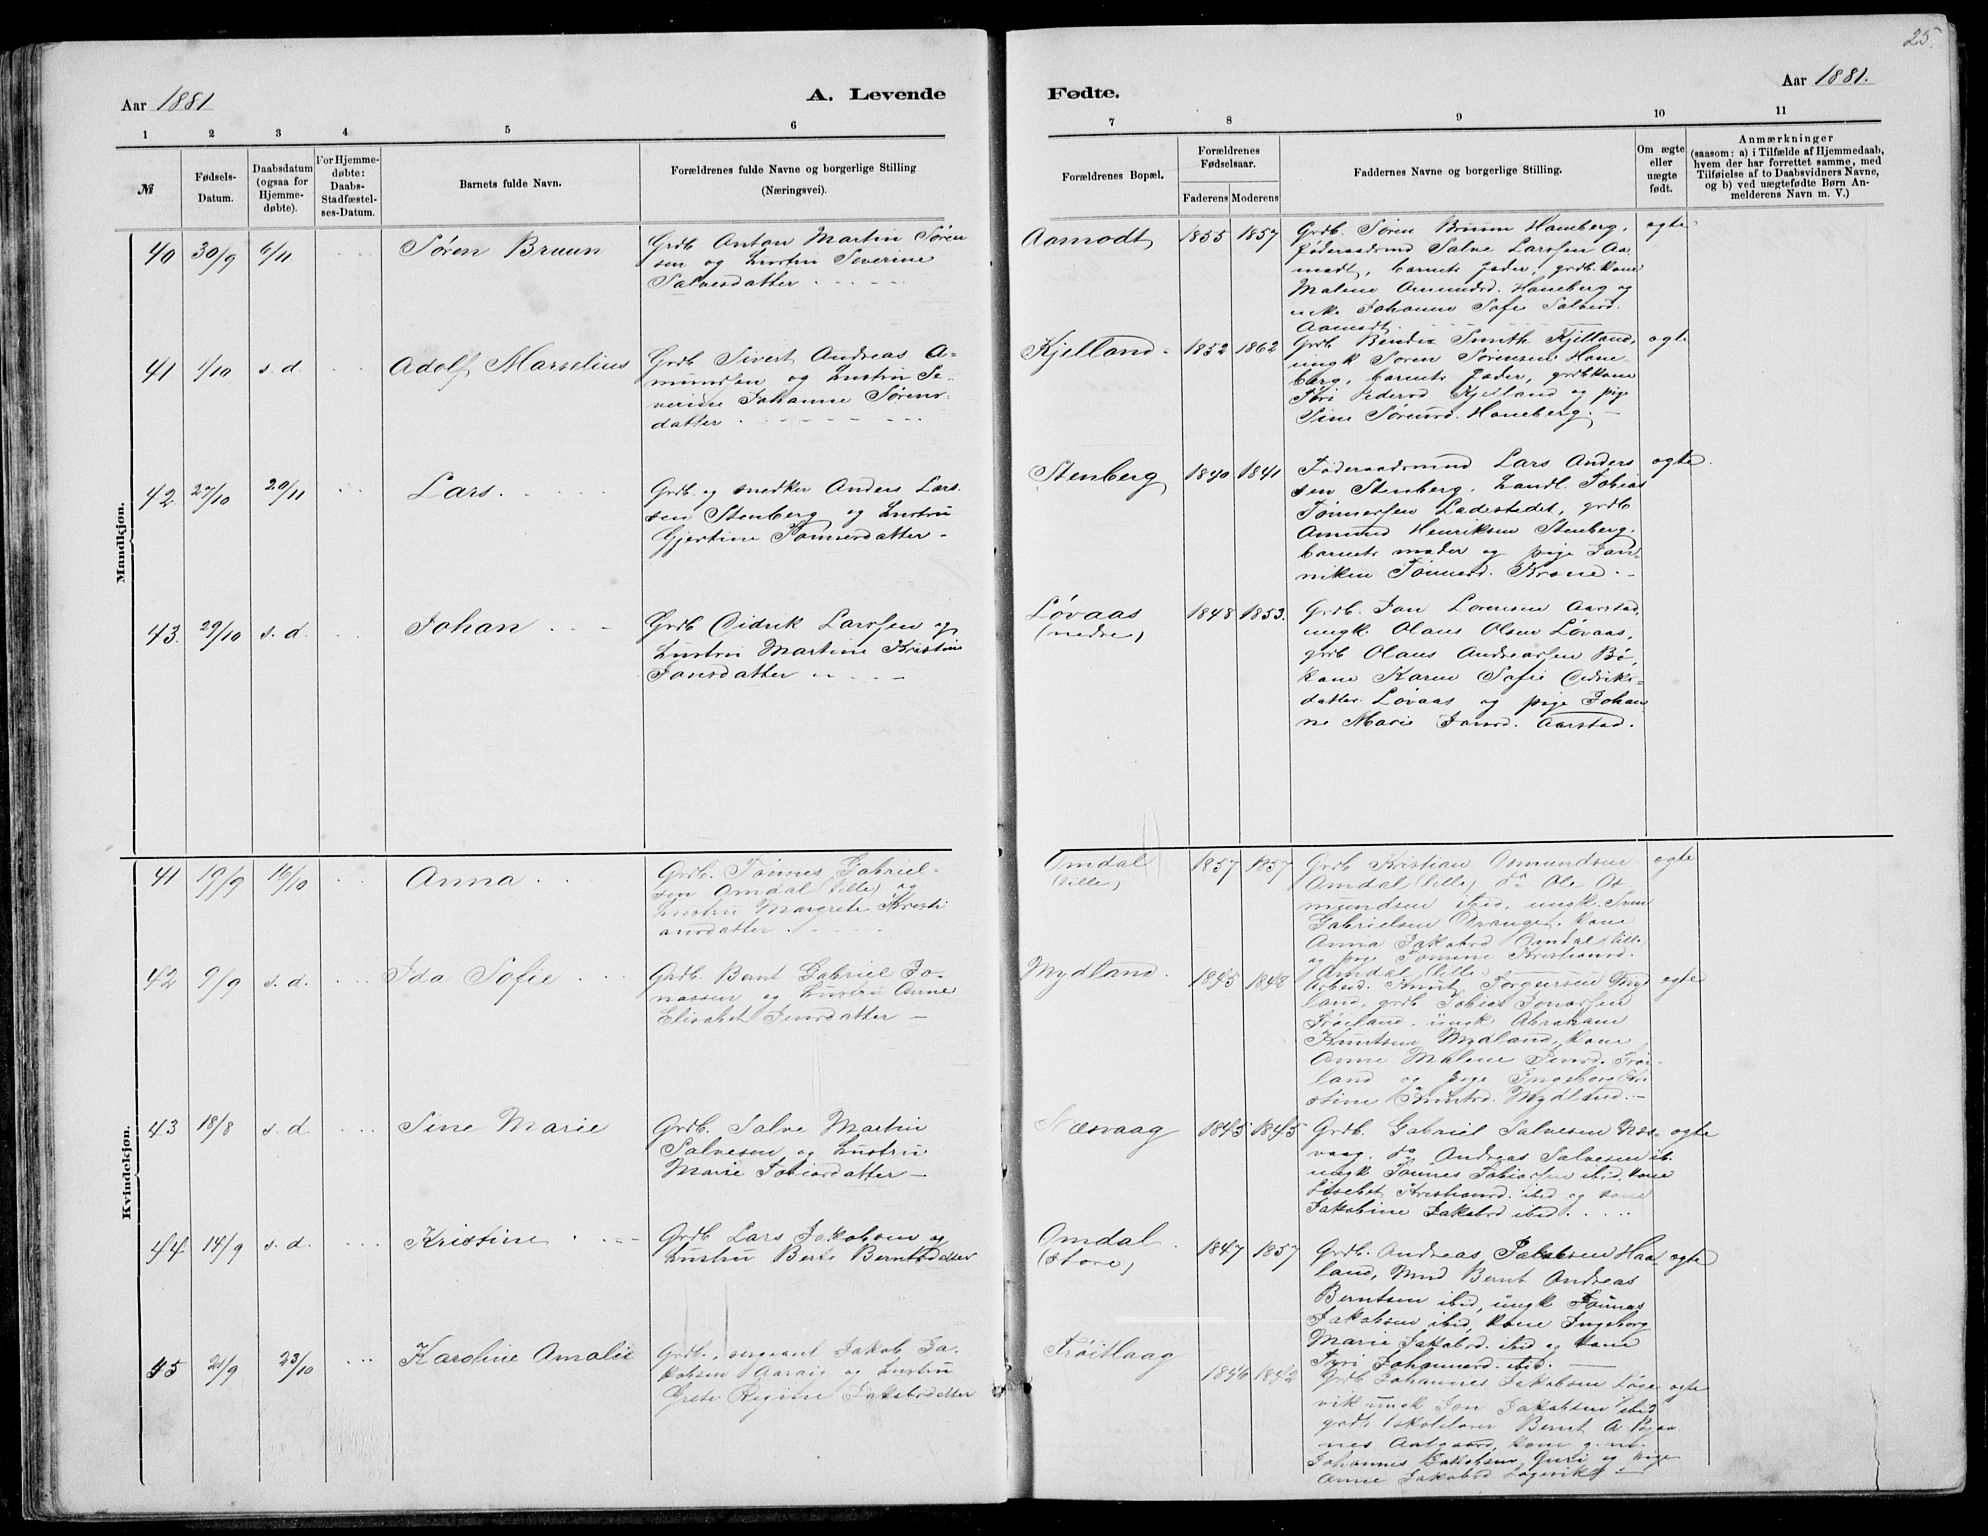 25.
Aar 1881
A. Levende
Fødte.
Aar 1881.
1 2 3 4 5 6
7 8 9 10 11
№
Fødsels-
Datum.
Daabsdatum
(ogsaa for
Hjemme-
døbte).
For Hjemme-
døbte:
Daabs-
Stadfæstel-
ses-Datum.
Barnets fulde Navn.
Forældrenes fulde Navne og borgerlige Stilling
(Næringsvei).
Forældrenes Bopæl.
Forældrenes
Fødselsaar.
Faderens Moderens
Faddernes Navne og borgerlige Stilling.
Om ægte
eller
uægte
født.
Anmærkninger
(saasom: a) i Tilfælde af Hjemmedaab,
hvem der har forrettet samme, med
Tilføielse af to Daabsvidners Navne,
og b) ved uægtefødte Børn An-
melderens Navn m. V.)
Mandkjøn.
40 30/9 6/11 Søren Bruun
Grdb. Anton Martin Søren
sen og hustru Severine
Salvesdatter
Aamodt 1855 1857
Grdb. Søren Bruun Haneberg,
føderaadsmd Salve Larssen Aa-
modt, barnets fader, grdb.kone
Malene Amundsd. Haneberg og
enke Johanne Sofie Salvesd.
Aamodt.
ægte
41. 1/10 s. d. Adolf Marselius
Grdb. Sivert Andreas A-
mundsen og hustru Se-
verine Johanne Sørens-
datter
Kjelland 1852 1862
Grdb. Bendix Smith Kjelland,
ungk Søren Sørensen Hane-
berg, barnets fader, grdbkone
Siri Pedersd Kjelland og pige
Sine Sørensd. Haneberg.
ægte
42. 27/10 20/11 Lars.
Grdb. og snedker Anders Lars-
sen Stenberg og hustru
Gjertine Tønnesdatter
Stenberg 1840 1841
Føderaadsmnd Lars Anders
sen Stenberg, handl. Tobias
Tønnessen Ladestedet, grdb
Amund Henriksen Stenberg,
barnets moder og pige Jan-
niken Tønnesd. Krone.
ægte.
43. 29/10 s. d. Johan
Grdb Didrik Larssen og
hustru Martine Kristine
Jansdatter
Løvaas
(nedre)
1848 1853.
Grdb. Jan Lorensen Aarstad,
ungk. Olaus Olsen Løvaas,
grdb Olaus Andreassen Bø,
kone Karen Sofie Didriks-
datter Løvaas og pige Johan
ne Marie Jansd. Aarstad.
Kvindekjøn.
41 19/9 16/10 Anna
Grdb. Tønnes Gabriel-
sen Omdal (lille) og
hustru Margrete Kristi
ansdatter
Omdal
(lille)
1857 1857
Grdb Kristian Osmundsen
Omdal (lille) do Ole Os
mundsen ibid, ungk. Sven
Gabrielsen Dranget, kone
Anna Jakobsd Omdal lille
og pige Tomine Kristiansd.
Omdal (lille)
ægte
42 9/9 s. d. Ida Sofie
Grdb. Bernt Gabriel Jo-
nassen og hustru Anne
Elisabet Jensdatter
Mydland. 1845 1848
Arbeid. Knut Torgersen Myd
land, grdb Tobias Jonassen
Frøiland, ungk Abraham
Knutsen Mydland, kone
Anne Malene Jensd. Frøi-
land og pige Ingeborg Kri
stine Knutsd. Mydland.
ægte
43 18/8 s. d. Sine Marie
Grdb. Salve Martin
Salvesen og hustru
Marie Tobiasdatter
Næsvaag 1845 1845
Grdb. Gabriel Salvesen Næs-
vaag, do Andreas Salvesen ib.
ungk Tønnes Tobiassen ibid, kone
Lisebet Kristiansd. ibid og kone
Jakobine Jakobsd ibid.
ægte
44 14/9 s. d. Kristine
Grdb Lars Jakobsen og
hustru Berte Berntsdatter
Omdal
(store)
1847 1857
Grdb. Andreas Jakobsen Haa
land, Mnd Bernt Andreas
Berntsen ibid, ungk Tønnes
Jakobsen ibid, kone Ingeborg
Marie Jakobsd. ibid og kone
Tyri Johannesd. ibid.
ægte
45 21/9 23/10 Karoline Amalie
Grdb., sergeant Jakob Ja-
kobsen Aarvig og hustru
Grete Regine Jakobsdatter
Frøitlaag 1846 1842
Grdb Johannes Jakobsen Løge-
vik ungk Jon Jakobsen ibid
grdb skolelærer Bernt A
nes Aatgaard, kone g. m.
Johannes Jakobsen Guri og pige
Anne Jakobsd Løgevik
ægte